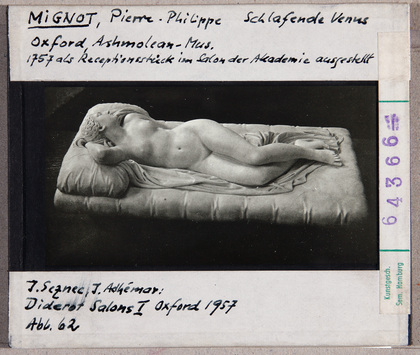 MIGNOT, Pierre-Philippe Schlafende Venus
Oxford, Ashmolean-Mus.
1757 als Receptionsstück im Salon der Akademie ausgestellt
64366
Kunstgesch.
Sem. Hamburg
J. Seznec, J. Adhémar:
Diderot Salons I Oxford 1957
Abb. 62